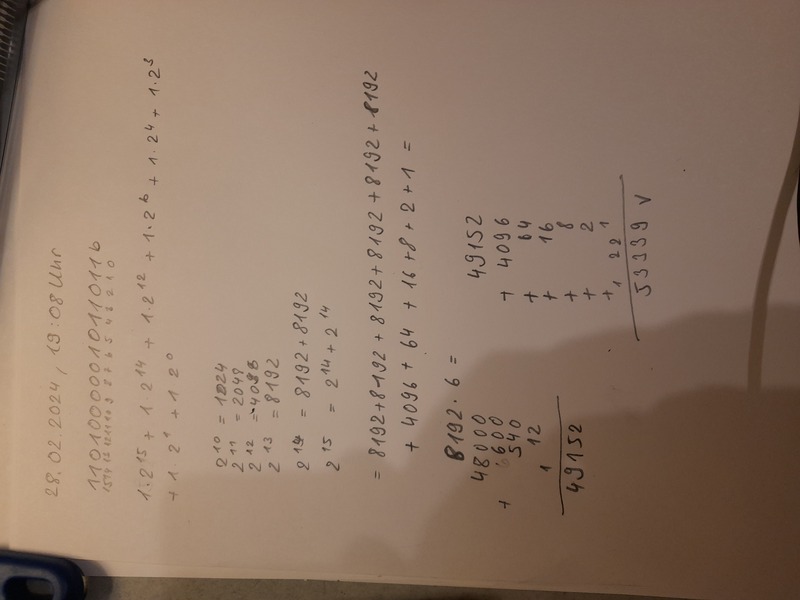 28.02.2024, 19:08 Uhr
1101000001011011b
15 14 13 12 11 10 9 8 7 6 5 4 3 2 1 0
1·2^15 + 1·2^14 + 1·2^12 + 1·2^6 + 1·2^4 + 1·2^3
+ 1·2^1 + 1·2^0
2^10 = 1024
2^11 = 2048
2^12 = 4096
2^13 = 8192
2^14 = 8192+8192
2^15 = 2^14 + 2^14
= 8192+8192+8192+8192+8192+8192
+ 4096 + 64 + 16 + 8 + 2 + 1 =
8192 · 6 =
48000
+ 600
540
12
1
49152
49152
+ 4096
+ 64
+ 16
+ 8
+ 2
+ 1
1 22
53339 √